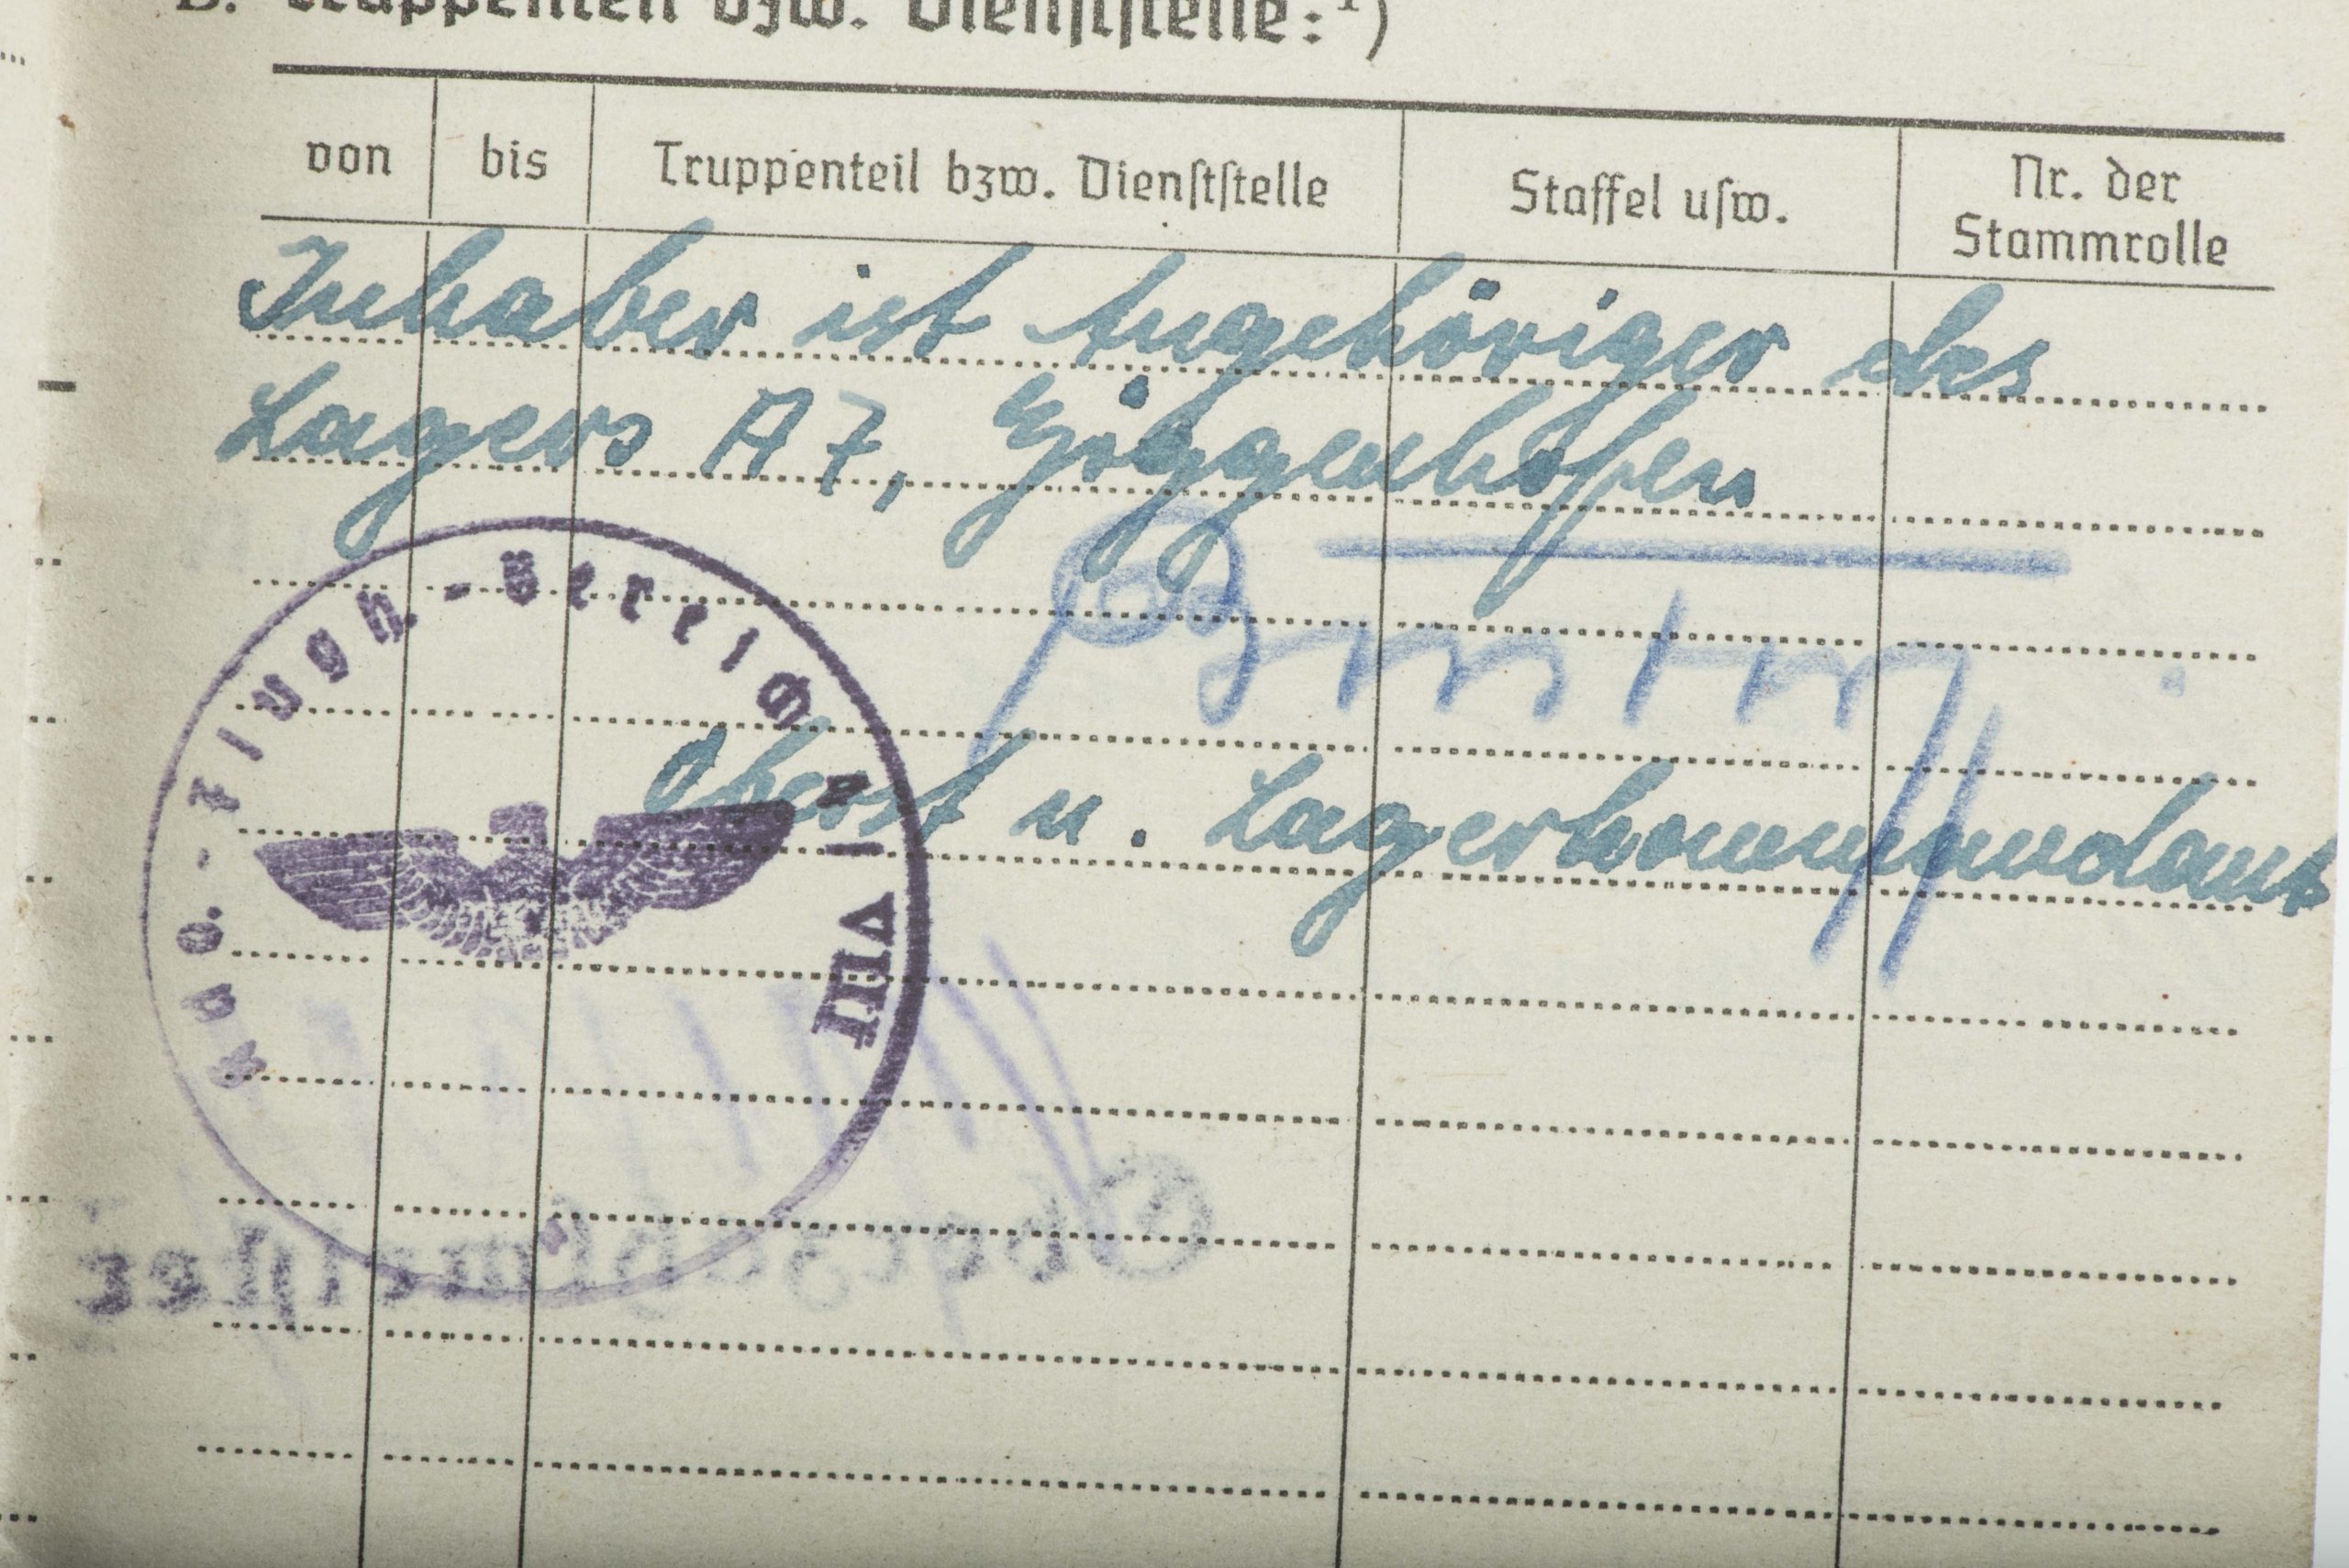 B. Truppenteil bzw. Dienststelle:¹)
von bis Truppenteil bzw. Dienststelle Staffel usw. Nr. der
Stammrolle
Inhaber ist Angehöriger des
Lagers A7, Göggenhofen
Oberst u. Lagerkommandant
Kdo.-Flugh.-Bereich A/VII
Oberzahlmeister